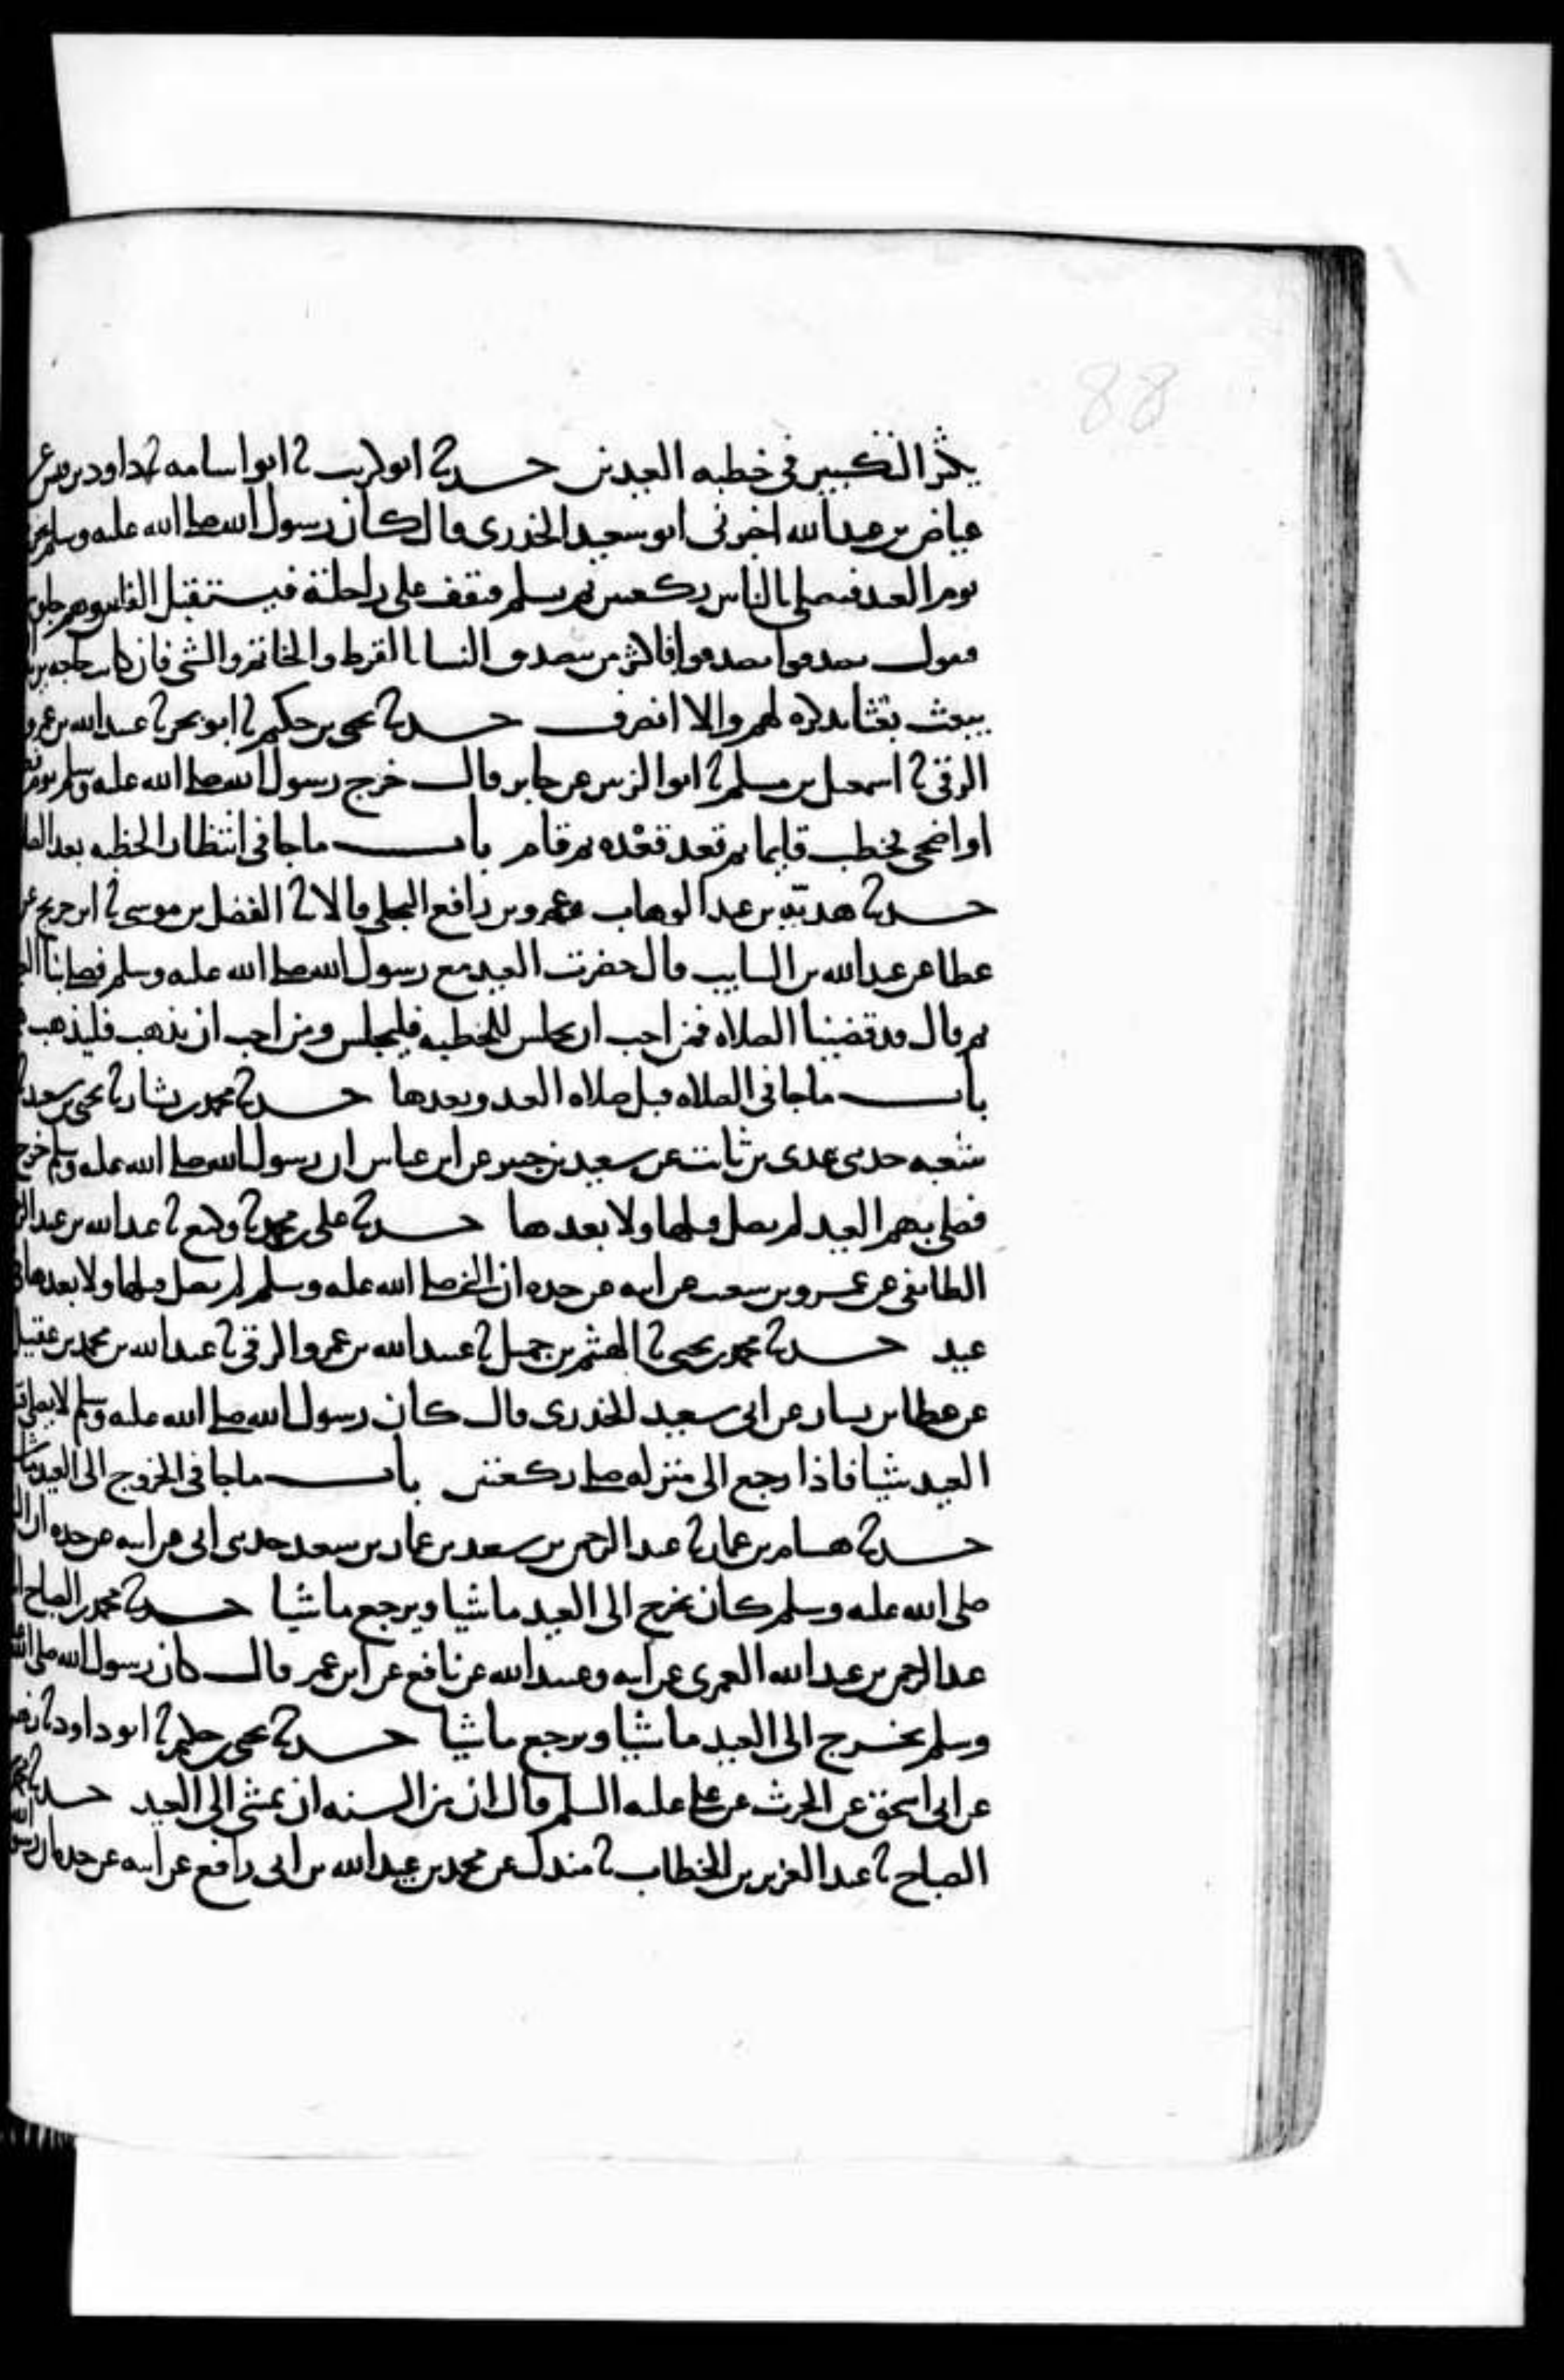 88
يكثر التكبير في خطبه العيدين حدثنا ابو كريب ثنا ابو اسامه ثنا داود بن قيس عن
عياض بن عبد الله اخبرني ابو سعيد الخدري قال كان رسول الله صلى الله عليه وسلم يخرج
يوم العيد فيصلي بالناس ركعتين ثم يسلم فيقف على راحلته فيستقبل الناس وهم جلوس
فيقول تصدقوا تصدقوا فاكثر من يتصدق النسا بالقرط والخاتم والشي فان كانت حاجه يريد
يبعث بعثا يذكره لهم والا انصرف حدثنا يحيى بن حكيم ثنا ابو بحر ثنا عبيد الله بن عمرو
الرقي ثنا اسمعيل بن مسلم ثنا ابو الزبير عن جابر قال خرج رسول الله صلى الله عليه وسلم يوم فطر
او اضحى فخطب قايما ثم قعد قعده ثم قام باب ما جا في انتظار الخطبه بعد الصلا
حدثنا هديه بن عبد الوهاب وعمرو بن رافع البجلي قالا ثنا الفضل بن موسى ثنا ابن جريج عن
عطا عن عبد الله بن السايب قال حضرت العيد مع رسول الله صلى الله عليه وسلم فصلى بنا العيد
ثم قال قد قضينا الصلاه فمن احب ان يجلس للخطبه فليجلس ومن احب ان يذهب فليذهب
باب ما جا في الصلاه قبل صلاه العيد وبعدها حدثنا محمد بن بشار ثنا يحيى بن سعيد ثنا
شعبه حدثني عدي بن ثابت عن سعيد بن جبير عن ابن عباس ان رسول الله صلى الله عليه وسلم خرج
فصلى بهم العيد لم يصل قبلها ولا بعدها حدثنا علي بن محمد ثنا وكيع ثنا عبد الله بن عبد الرحمن
الطايفي عن عمرو بن شعيب عن ابيه عن جده ان النبي صلى الله عليه وسلم لم يصل قبلها ولا بعدها في
عيد حدثنا محمد بن يحيى ثنا الهيثم بن جميل ثنا عبيد الله بن عمرو الرقي ثنا عبد الله بن محمد بن عقيل
عن عطا بن يسار عن ابي سعيد الخدري قال كان رسول الله صلى الله عليه وسلم لا يصلي قبل
العيد شيا فاذا رجع الى منزله صلى ركعتين باب ما جا في الخروج الى العيد ماشيا
حدثنا هشام بن عمار ثنا عبد الرحمن بن سعد بن عمار بن سعد حدثني ابي عن ابيه عن جده ان النبي
صلى الله عليه وسلم كان يخرج الى العيد ماشيا ويرجع ماشيا حدثنا محمد بن الصباح ثنا
عبد الرحمن بن عبد الله العمري عن ابيه وعبيد الله عن نافع عن ابن عمر قال كان رسول الله صلى الله عليه
وسلم يخرج الى العيد ماشيا ويرجع ماشيا حدثنا يحيى بن حكيم ثنا ابو داود ثنا زهير
عن ابي اسحق عن الحرث عن علي عليه السلم قال ان من السنه ان يمشى الى العيد حدثنا محمد بن
الصباح ثنا عبد العزيز بن الخطاب ثنا مندل عن محمد بن عبيد الله بن ابي رافع عن ابيه عن جده ان رسول الله